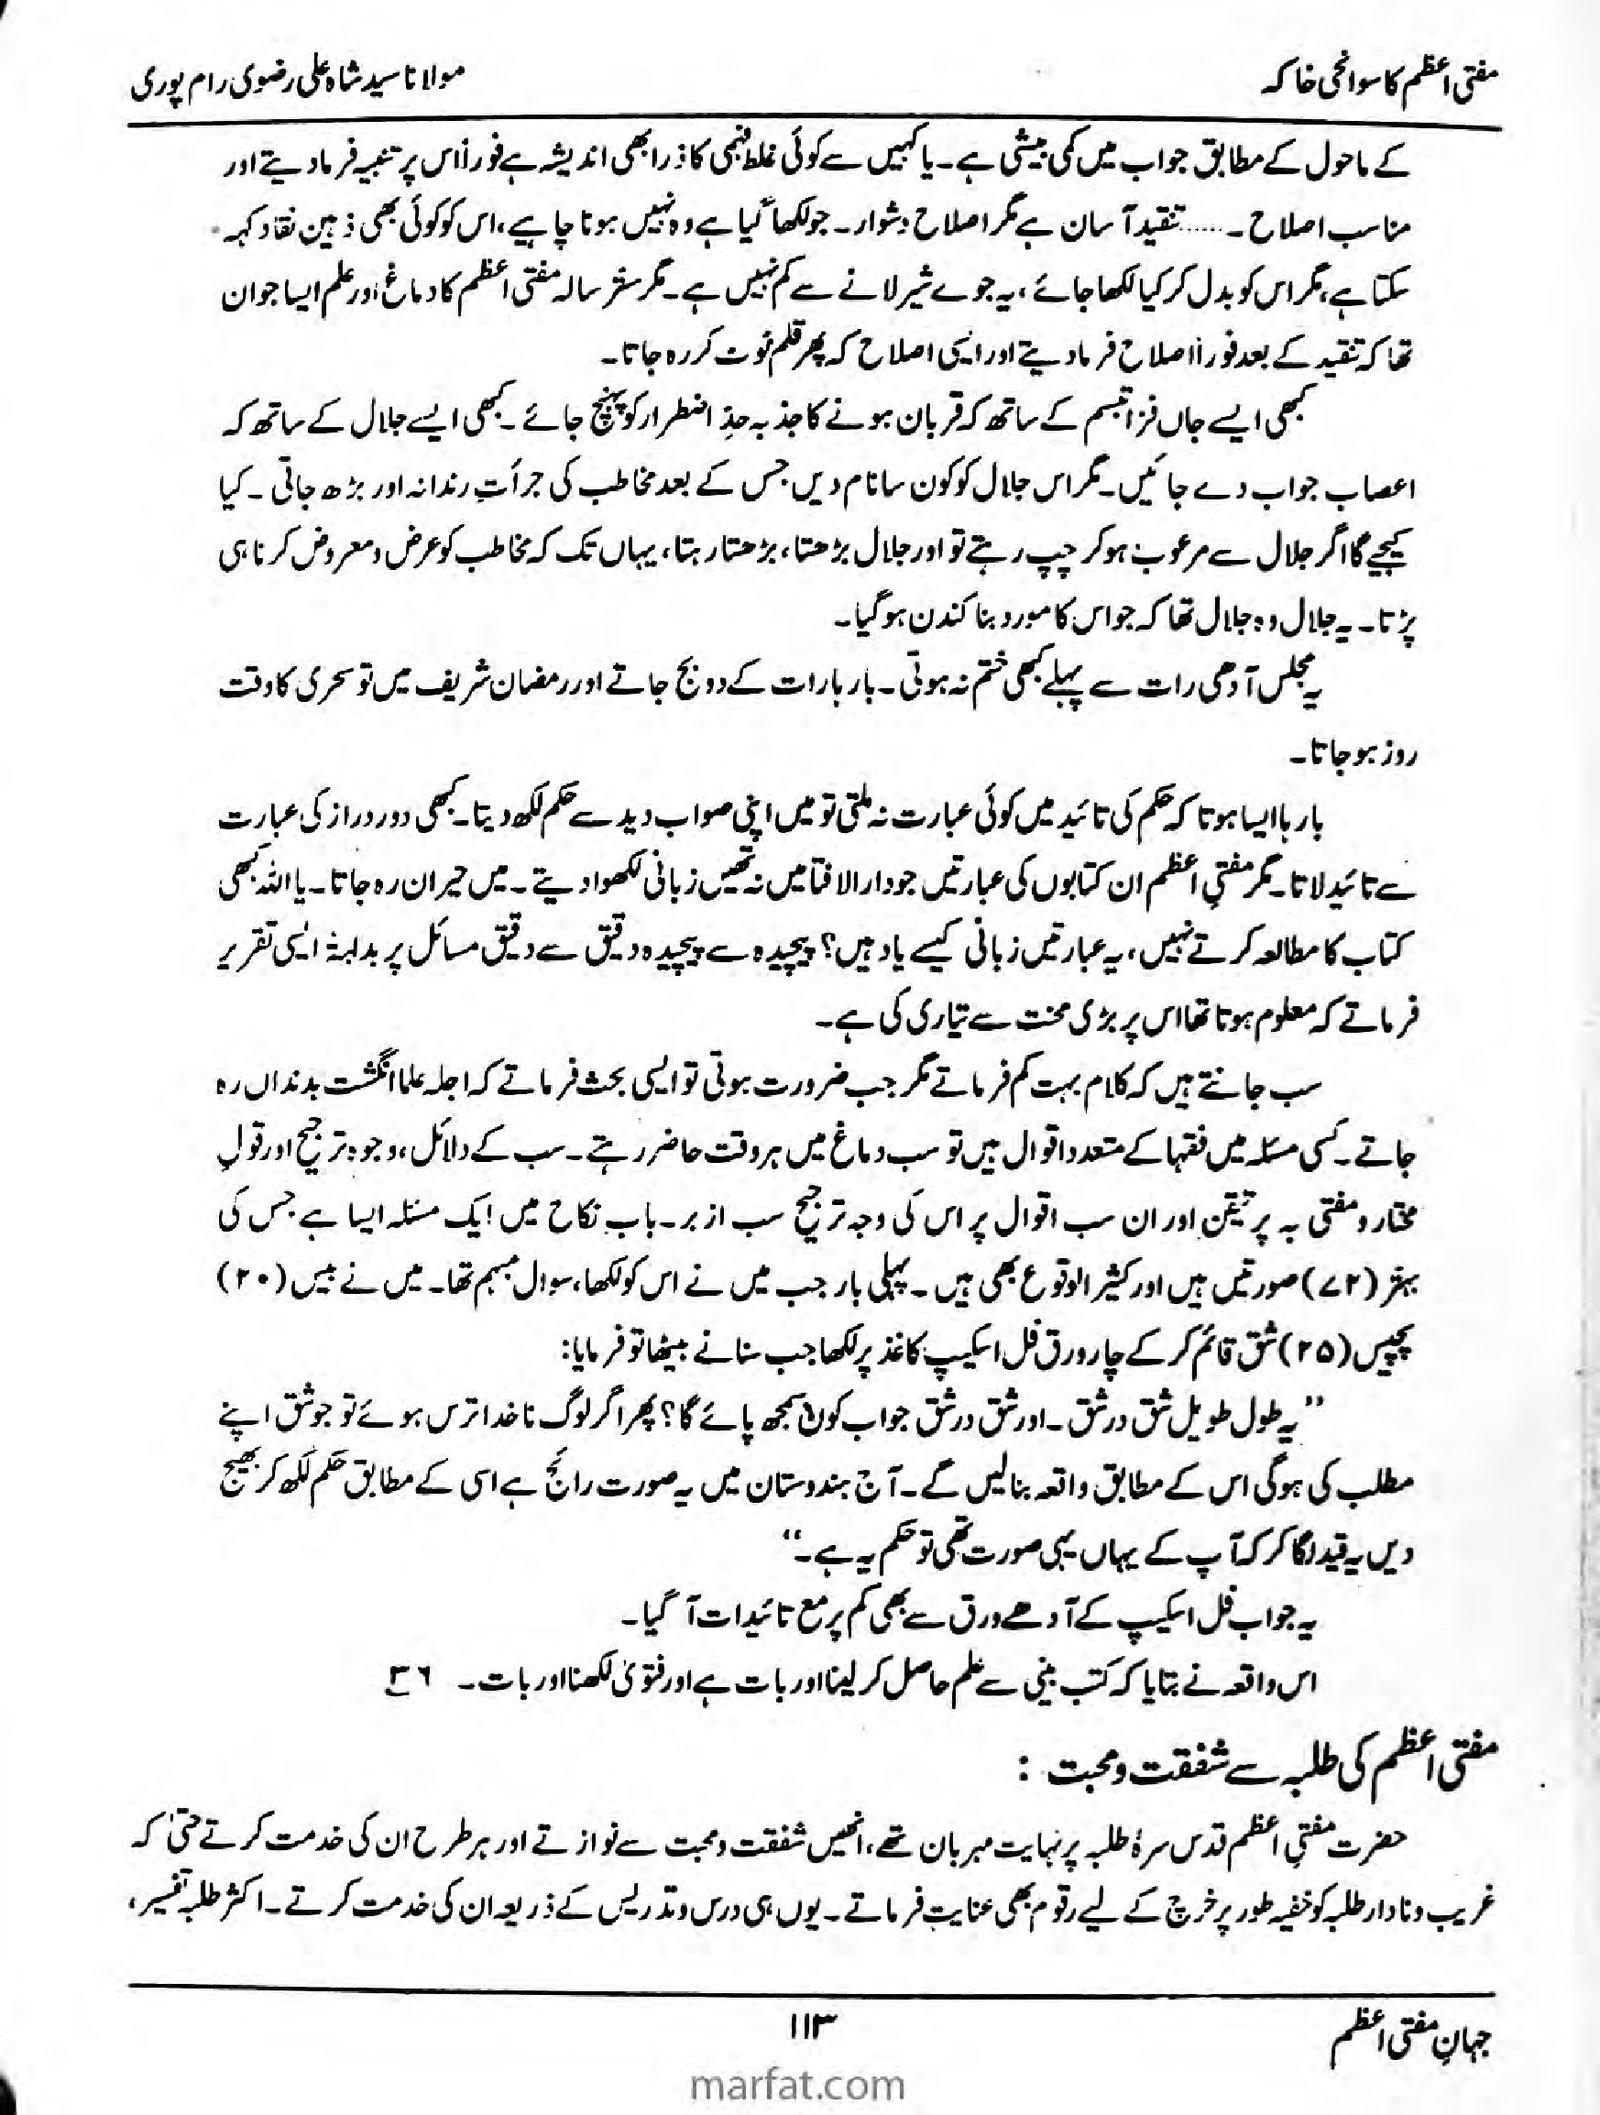 مفتی اعظم کا سوانحی خاکہ
مولانا سید شاہ علی رضوی رام پوری
کے ماحول کے مطابق جواب میں کمی بیشی ہے۔ یا کہیں سے کوئی غلط فہمی کا ذرا بھی اندیشہ ہے فوراً اس پر تنبیہ فرما دیتے اور
مناسب اصلاح۔......تنقید آسان ہے مگر اصلاح دشوار۔ جو لکھا گیا ہے وہ نہیں ہونا چاہیے، اس کو کوئی بھی ذہین نقاد کہہ
سکتا ہے، مگر اس کو بدل کر کیا لکھا جائے، یہ جوے شیر لانے سے کم نہیں ہے۔ مگر ستر سالہ مفتی اعظم کا دماغ اور علم ایسا جوان
تھا کہ تنقید کے بعد فوراً اصلاح فرما دیتے اور ایسی اصلاح کہ پھر قلم ٹوٹ کر رہ جاتا۔
کبھی ایسے جاں فزا تبسم کے ساتھ کہ قربان ہونے کا جذبہ حدِ اضطرار کو پہنچ جائے۔ کبھی ایسے جلال کے ساتھ کہ
اعصاب جواب دے جائیں۔ مگر اس جلال کو کون سا نام دیں جس کے بعد مخاطب کی جرأتِ رندانہ اور بڑھ جاتی۔ کیا
کیجیے گا اگر جلال سے مرعوب ہو کر چپ رہتے تو اور جلال بڑھتا، بڑھتا رہتا، یہاں تک کہ مخاطب کو عرض و معروض کرنا ہی
پڑتا۔ یہ جلال وہ جلال تھا کہ جو اس کا مورد بنا کندن ہو گیا۔
یہ مجلس آدھی رات سے پہلے کبھی ختم نہ ہوتی۔ بارہا رات کے دو بج جاتے اور رمضان شریف میں تو سحری کا وقت
روز ہو جاتا۔
بارہا ایسا ہوتا کہ حکم کی تائید میں کوئی عبارت نہ ملتی تو میں اپنی صواب دید سے حکم لکھ دیتا۔ کبھی دور دراز کی عبارت
سے تائید لاتا۔ مگر مفتیِ اعظم ان کتابوں کی عبارتیں جو دارالافتا میں نہ تھیں زبانی لکھوا دیتے۔ میں حیران رہ جاتا۔ یا اللہ کبھی
کتاب کا مطالعہ کرتے نہیں، یہ عبارتیں زبانی کیسے یاد ہیں؟ پیچیدہ سے پیچیدہ دقیق سے دقیق مسائل پر بداہۃً ایسی تقریر
فرماتے کہ معلوم ہوتا تھا اس پر بڑی محنت سے تیاری کی ہے۔
سب جانتے ہیں کہ کلام بہت کم فرماتے مگر جب ضرورت ہوتی تو ایسی بحث فرماتے کہ اجلہ علما انگشت بدنداں رہ
جاتے۔ کسی مسئلہ میں فقہا کے متعدد اقوال ہیں تو سب دماغ میں ہر وقت حاضر رہتے۔ سب کے دلائل، وجوہِ ترجیح اور قولِ
مختار و مفتی بہ پر تیقن اور ان سب اقوال پر اس کی وجہ ترجیح سب ازبر۔ باب نکاح میں ایک مسئلہ ایسا ہے جس کی
بہتر (۷۲) صورتیں ہیں اور کثیر الوقوع بھی ہیں۔ پہلی بار جب میں نے اس کو لکھا، سوال مبہم تھا۔ میں نے بیس (۲۰)
پچیس (۲۵) شق قائم کر کے چار ورق فل اسکیپ کاغذ پر لکھا جب سنانے بیٹھا تو فرمایا:
”یہ طول طویل شق در شق۔ اور شق در شق جواب کون سمجھ پائے گا؟ پھر اگر لوگ ناخدا ترس ہوئے تو جو شق اپنے
مطلب کی ہوگی اس کے مطابق واقعہ بنا لیں گے۔ آج ہندوستان میں یہ صورت رائج ہے اسی کے مطابق حکم لکھ کر بھیج
دیں یہ قید لگا کر کہ آپ کے یہاں یہی صورت تھی تو حکم یہ ہے۔“
یہ جواب فل اسکیپ کے آدھے ورق سے بھی کم پر مع تائیدات آ گیا۔
اس واقعہ نے بتایا کہ کتب بینی سے علم حاصل کر لینا اور بات ہے اور فتویٰ لکھنا اور بات۔ ۳۶
مفتی اعظم کی طلبہ سے شفقت و محبت :
حضرت مفتیِ اعظم قدس سرہٗ طلبہ پر نہایت مہربان تھے، انھیں شفقت و محبت سے نوازتے اور ہر طرح ان کی خدمت کرتے حتیٰ کہ
غریب و نادار طلبہ کو خفیہ طور پر خرچ کے لیے رقوم بھی عنایت فرماتے۔ یوں ہی درس و تدریس کے ذریعہ ان کی خدمت کرتے۔ اکثر طلبہ تفسیر،
۱۱۳
جہانِ مفتی اعظم
marfat.com